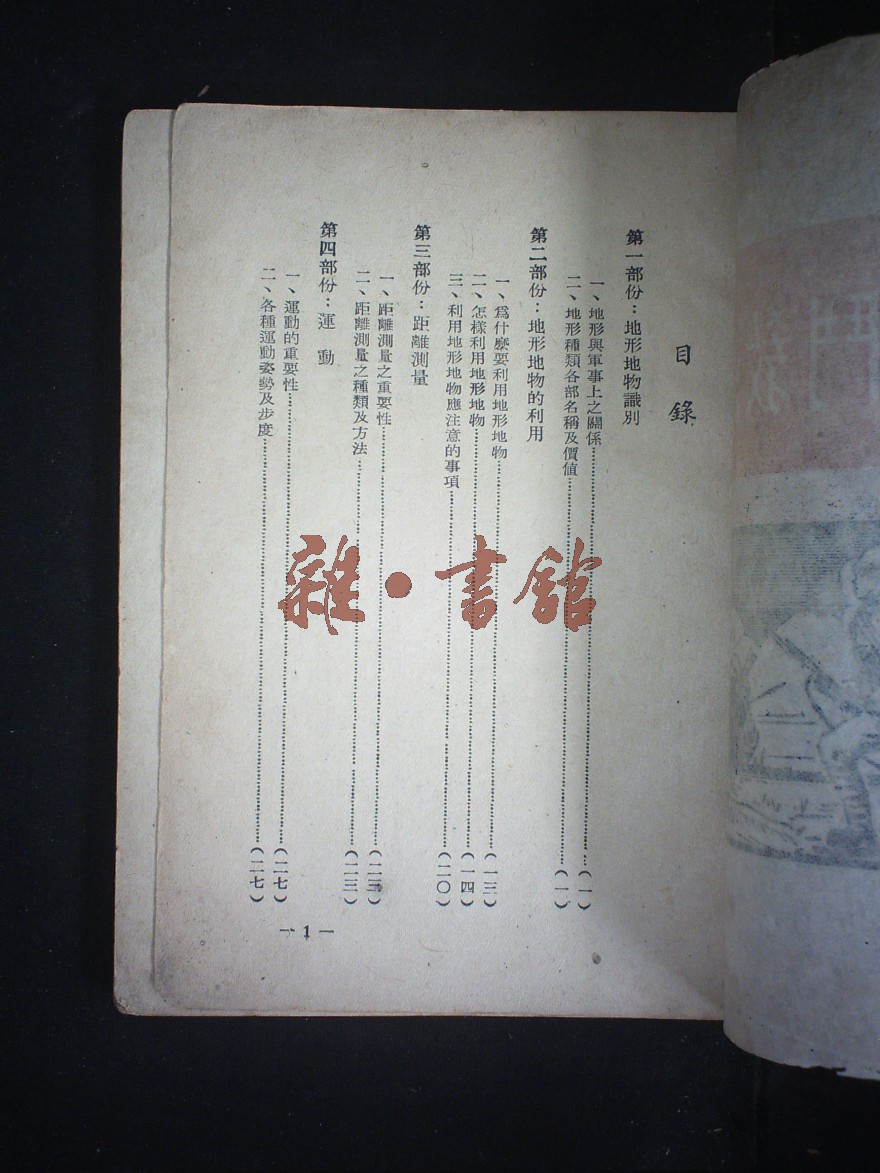 目錄
第一部份：地形地物識別
一、地形與軍事上之關係……（一）
二、地形種類各部名稱及價值……（一）
第二部份：地形地物的利用
一、爲什麼要利用地形地物……（一三）
二、怎樣利用地形地物……（一四）
三、利用地形地物應注意的事項……（二〇）
第三部份：距離測量
一、距離測量之重要性……（二三）
二、距離測量之種類及方法……（二三）
第四部份：運動
一、運動的重要性……（二七）
二、各種運動姿勢及步度……（二七）
—1—
雜·書館